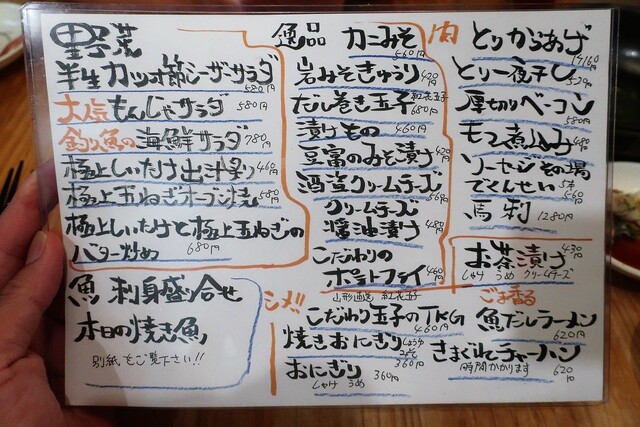 野菜
半生カツオ節シーザーサラダ
580円
大人気もんじゃサラダ 580円
釣り魚の海鮮サラダ 780円
極上しいたけ出汁炒り 460円
極上玉ねぎオーブン焼 580円
極上しいたけと極上玉ねぎの
バター炒め 680円
魚 刺身盛り合せ
本日の焼き魚
別紙をご覧下さい!!
逸品 カニみそ
560円
岩みそきゅうり 420円
だし巻き玉子 紅花玉子 680円
漬けもの 460円
豆富のみそ漬け 420円
酒盗クリームチーズ 560円
クリームチーズ
醤油漬け 480円
こだわりの
ポテトフライ 460円
肉 とりからあげ
とり一夜干し
厚切りベーコン
580円
もつ煮込み 480円
ソーセージその場
でくんせい 5本
560円
馬刺 1280円
お茶漬け 430円
しゃけ うめ クリームチーズ
シメ!!
山形直送 紅花玉子
こだわり玉子のTKG
460円
焼きおにぎり しょうゆ
みそ 360円
おにぎり 360円
しゃけ うめ
ごま香る
魚だしラーメン
620円
きまぐれチャーハン
時間かかります 620円